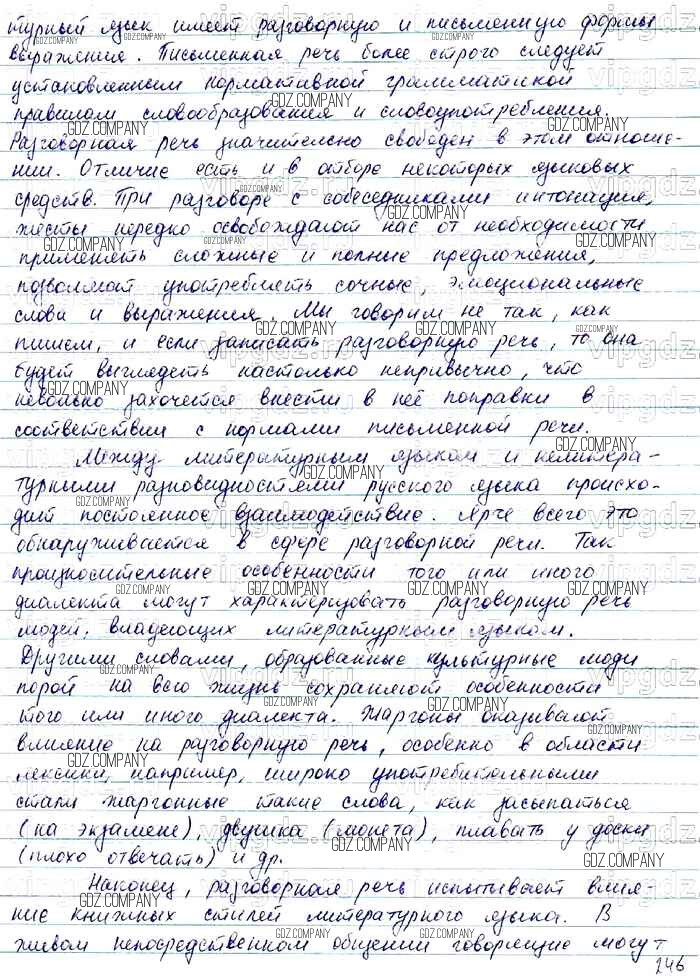 турный язык имеет разговорную и письменную формы
выражения. Письменная речь более строго следует
установленным нормативной грамматикой
правилам словообразования и словоупотребления.
Разговорная речь значительно свободен в этом отноше-
нии. Отличие есть и в отборе некоторых языковых
средств. При разговоре с собеседниками интонация,
жесты нередко освобождают нас от необходимости
применять сложные и полные предложения,
позволяют употреблять сочные, эмоциональные
слова и выражения. Мы говорим не так, как
пишем, и если записать разговорную речь, то она
будет выглядеть настолько непривычно, что
невольно захочется внести в неё поправки в
соответствии с нормами письменной речи.
Между литературным языком и нелитера-
турными разновидностями русского языка происхо-
дит постоянное взаимодействие. Ярче всего это
обнаруживается в сфере разговорной речи. Так
произносительные особенности того или иного
диалекта могут характеризовать разговорную речь
людей, владеющих литературным языком.
Другими словами, образованные культурные люди
порой на всю жизнь сохраняют особенности
того или иного диалекта. Жаргоны оказывают
влияние на разговорную речь, особенно в области
лексики, например, широко употребительными
стали жаргонные такие слова, как засыпаться
(на экзамене), двушка (монета), плавать у доски
(плохо отвечать) и др.
Наконец, разговорная речь испытывает влия-
ние книжных стилей литературного языка. В
живом непосредственном общении говорящие могут
246